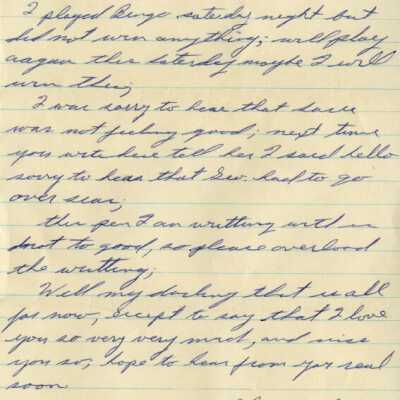 I played Bingo saterday night but
did not win anything; will play
aagan this saterday maybe I will
win then;
I was sorry to hear that
was not feeling good; next time
you write here tell her I said hello
sorry to hear that Geo. had to go
over seas;
this pen I am writting with is
not to good, so please overlood
the writting;
Well my darling that is all
for now, except to say that I love
you so very very much, and miss
you so, hope to hear from you real
soon